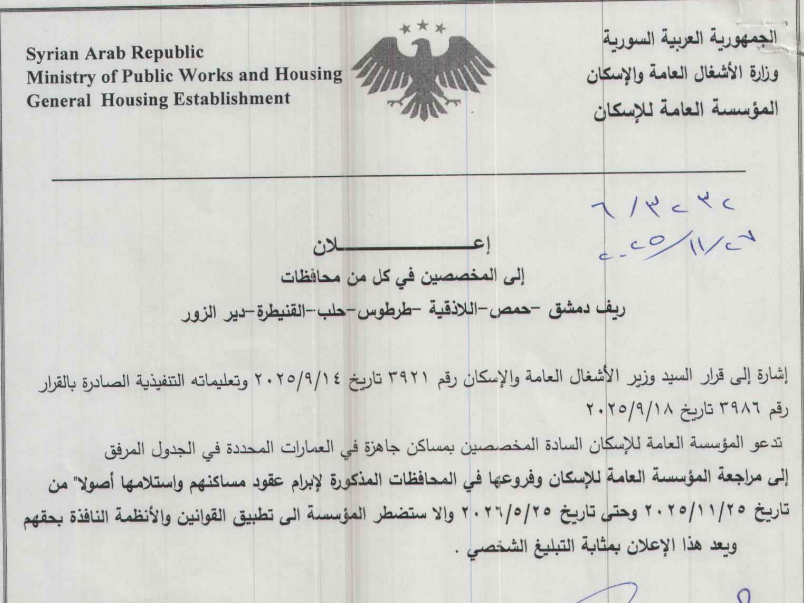 Syrian Arab Republic
Ministry of Public Works and Housing
General Housing Establishment
الجمهورية العربية السورية
وزارة الأشغال العامة والإسكان
المؤسسة العامة للإسكان
٦/٣٢٣٢
٢٠٢٥/١١/٢٧
إعـــــــــــلان
إلى المخصصين في كل من محافظات
ريف دمشق -حمص-اللاذقية -طرطوس-حلب-القنيطرة-دير الزور
إشارة إلى قرار السيد وزير الأشغال العامة والإسكان رقم ٣٩٢١ تاريخ ٢٠٢٥/٩/١٤ وتعليماته التنفيذية الصادرة بالقرار
رقم ٣٩٨٦ تاريخ ٢٠٢٥/٩/١٨
تدعو المؤسسة العامة للإسكان السادة المخصصين بمساكن جاهزة في العمارات المحددة في الجدول المرفق
إلى مراجعة المؤسسة العامة للإسكان وفروعها في المحافظات المذكورة لإبرام عقود مساكنهم واستلامها أصولا" من
تاريخ ٢٠٢٥/١١/٢٥ وحتى تاريخ ٢٠٢٦/٥/٢٥ والا ستضطر المؤسسة الى تطبيق القوانين والأنظمة النافذة بحقهم
ويعد هذا الإعلان بمثابة التبليغ الشخصي .